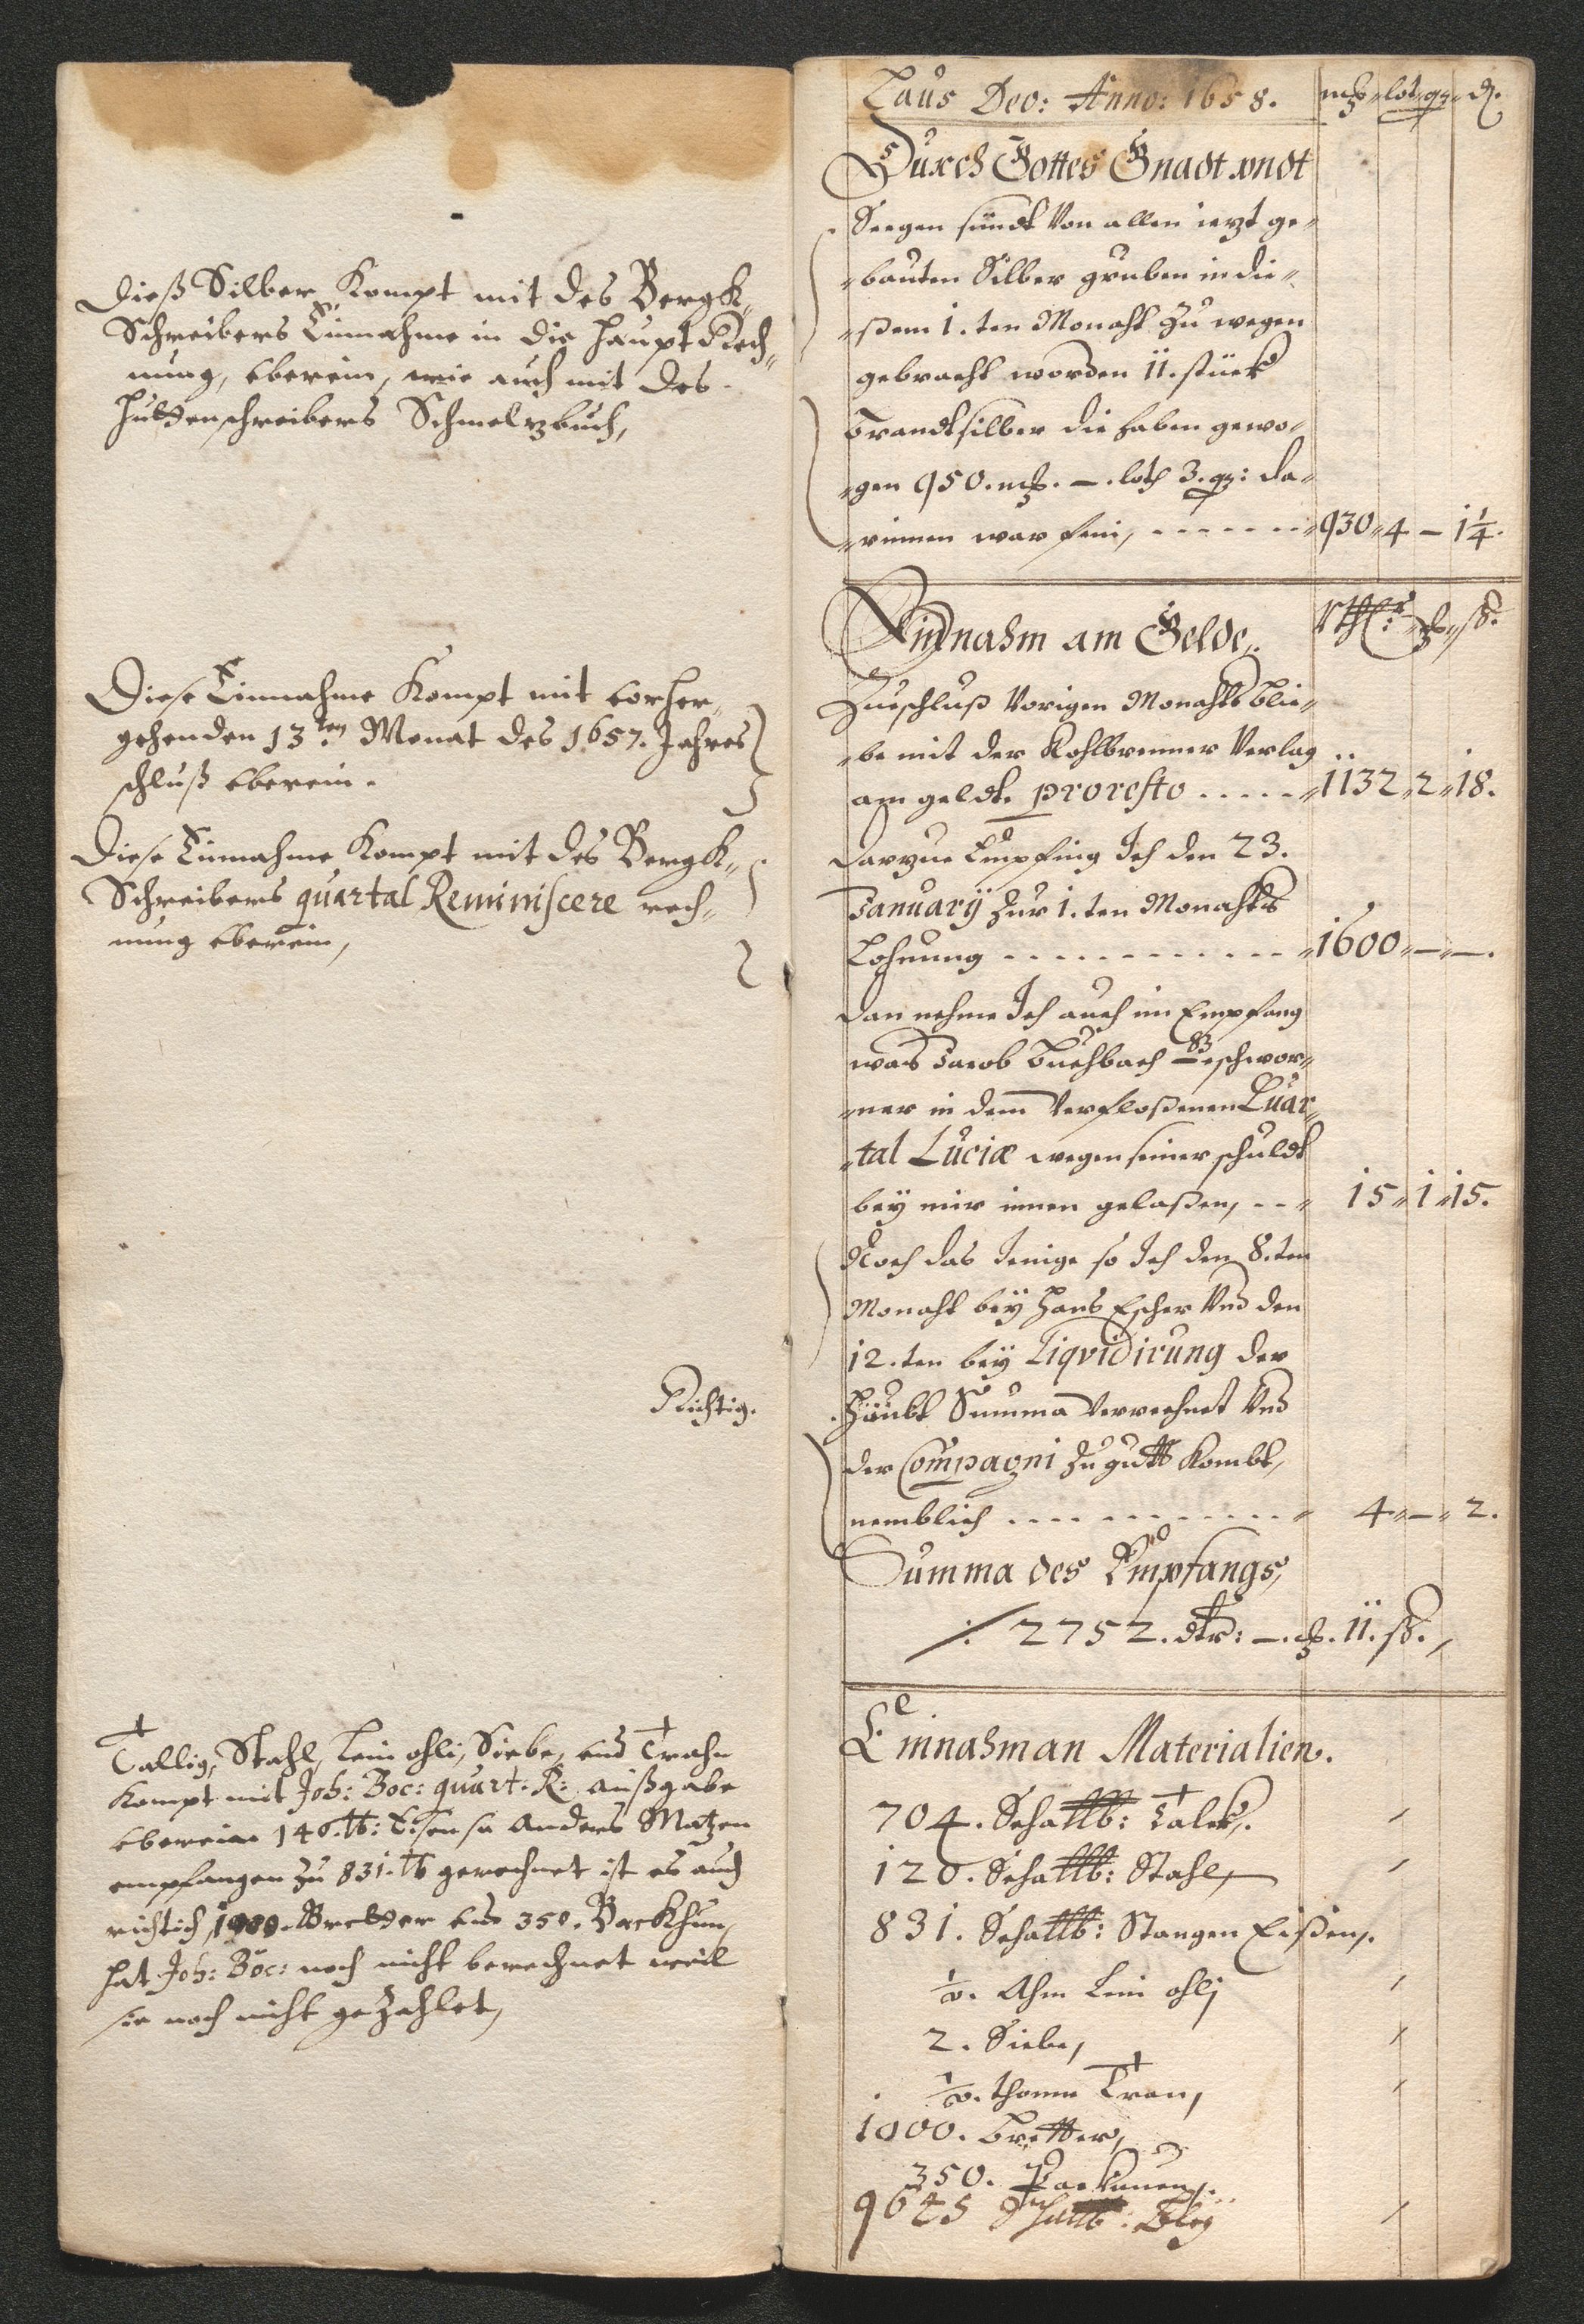 Dieß Silber Kompt mit des Bergk¬
Schreibers Einnahme in die Haupt Rech¬
nung, vberein, wie auch mit des
Hüttenschreibers Schmeltzbuch,
Diese Einnahme Kompt mit vorher¬
gehenden 13ten Monat des 1657. Jahres
schluß vberein.
Diese Einnahme Kompt mit des Bergk¬
Schreibers quartal Reminiscere rech¬
nung vberein,
Richtig.
Tallig, Stahl, Lein ohli, Siebe, vnd Trahn
Kompt mit Joh: Boc: quart. R: außgabe
vberein 146. lb: Eisen so Anders Matzen
empfangen zu 831. lb gerechnet ist es auch
richtich, 1000. Bretter vnd 350. Backhun,
hat Joh: Boc: noch nicht berechnet weil
sie noch nicht gezahlet,
Laus Deo: Anno: 1658. mk lot qz d.
Durch Gottes Gnadt vndt
Seegen sündt Von allen ietzt ge¬
bauten Silber gruben in die¬
ßem 1. ten Monaht Zu wegen
gebracht worden 11. stück
Brandtsilber die haben gewo¬
gen 950. mk. —. loth 3. qz: da¬
rinnen war fein, 930 4 — 1 1/4.
Einnahm am Gelde, Rthlr: mk ß.
Zueschluß Vorigen Monahts blie¬
be mit der Kohlbrenner Verlag
am geldt. pro resto 1132 2 18.
Darzue Empfing Ich den 23.
Januarÿ Zur 1. ten Monahts
Lohnung 1600 — —.
Dan nehme Ich auch im Empfang
was Jacob Buchbach Geschwor¬
ner in dem Verfloßenen Quar¬
tal Luciæ wegen seiner schuldt
beÿ mir innen gelaßen, 15 1 15.
Noch das Jenige so Ich den 8. ten
Monaht beÿ Hans Escher Vnd den
12. ten beÿ Liqvidirung der
Häubt Summa Verrechnet Vnd
der Compagni Zu gutt Kombt,
nemblich 4 — 2.
Summa des Empfangs,
/: 2752. dlr: —. mk. 11. ß.
Einnahm an Materialien.
704. Schallb: Talck.
120. Schallb: Stahl,
831. Schallb: Stangen Eißen,
1/2. Ahm Lein ohlj
2. Siebe,
1/2. thonne Tran,
1000. Bretter,
350. Backunen,
9645 Schallb: Bleÿ